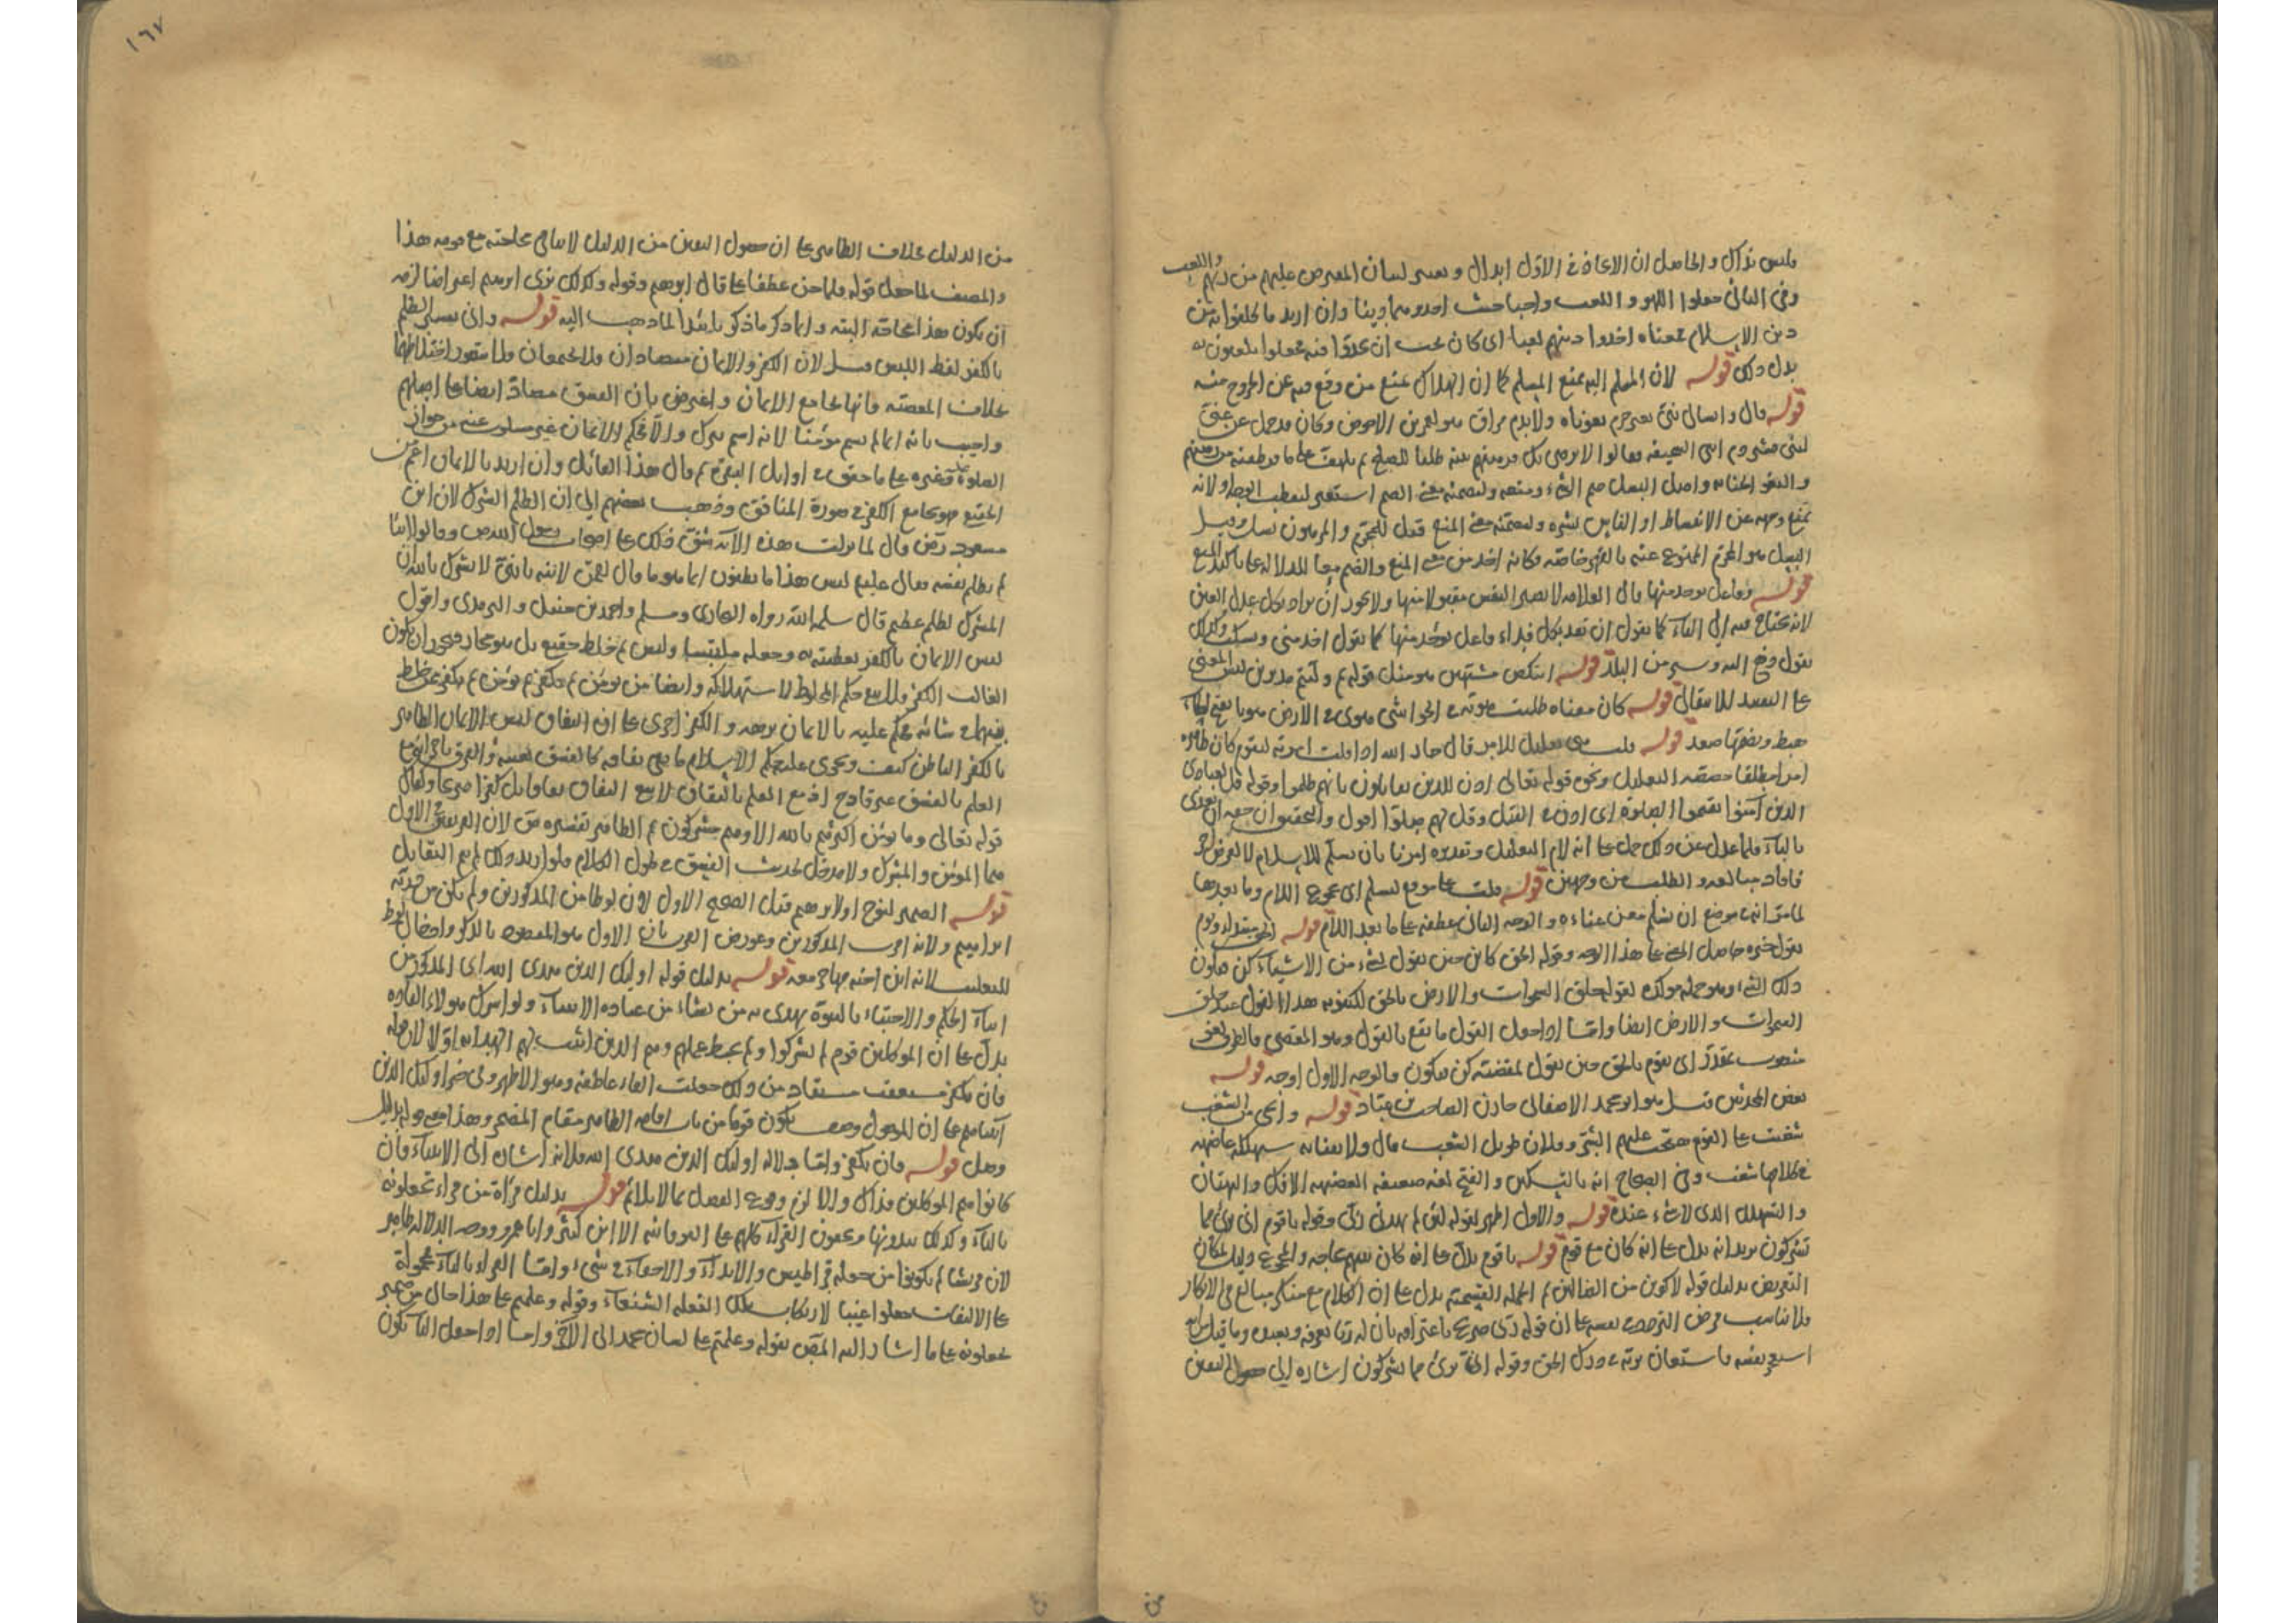 فليس بذاك والحاصل ان الاتخاذ في الاول ابدال ويعسر لسان المعترض عليهم من دينهم واللعب
وفي الثاني جعلوا اللهو واللعب واجبا حيث اخذوهما دينا وان اريد ما كلفوا به من
دين الاسلام فمعناه اخذوا دينهم لعبا اى كان يجب ان فيه فجعلوا يلعبون به
بدل ذلك قوله لان المسلم اليه يمنع المسلم كما ان الهلاك يمنع من وقع فيه عن الخروج منه
قوله قال وابسالى بنىّ بغير جرم بعوناه ولا بدم مراق هو لعمرو بن الاحوص وكان قد حمل عن غنىّ
لبنى قشير دم ابنى السجيفة فقالوا لا نرضى بك فرهنهم بنيه طلبا للصلح
والبعو الجناية واصل البسل ضم الشىء ومنعه ولتضمنه معنى الضم استعير لتقطيب الوجه ولانه
يمنع وجهه عن الانبساط او الناس بشره ولتضمنه معنى المنع قيل للمحرّم والمرتهن بسل وقيل
البسل هو المحرّم الممنوع عنه بالقهر خاصة وكانه اخذ من معنى المنع والضم معا للدلالة على تاكيد المنع
قوله وفاعل يوخذ منها قال العلامة لا نصير النفس مقبولا منها ولا يجوز ان يراد بكل عدل العين
لانه يحتاج فيه الى الباء كما يقول ان تفد بكل فداء وفاعل يوخذ منها كما تقول اخذ منى وسكت وكذلك
يقول دفع اليه وسير من البلد قوله اتنكص مشتهين هو مثل قوله ثم وليتم مدبرين ليس المعنى
على التقييد للانتقال قوله كان معناه طلبت هويّه فى الحواشى هوى فى الارض هويا بفتح الهاء
هبط وبضمها صعد قوله قلت هى تعليل للامر قال جار الله اذا قلت امرته ليقوم كان ظاهره
امرا مطلقا حقيقة التعليل ونحوه قوله تعالى اذن للذين يقاتلون بانهم ظلموا وقوله قل لعبادى
الذين آمنوا يقيموا الصلوة اى اذن فى القتل وقل لهم صلّوا اقول والتحقيق ان حقه ان يعدى
بالباء فلما عدل عن ذلك حمل على انه لام التعليل وتقديره امرنا بان نسلم للاسلام لا لغرض آخر
فافاد مبالغة فى الطلب من وجهين قوله قلت على موقع لنسلم اى مجموع اللام وما بعدها
لما مر انه فى موضع ان نسلم معنى والوجه الثانى عطفه على ما بعد اللام قوله
يقول خبره حاصل المعنى على هذا الوجه وقوله الحق كائن حين يقول لشىء من الاشياء كن فيكون
ذلك الشىء وهو جملة موكدة لقوله خلق السموات والارض بالحق لكينونة هذا القول عند خلق
السموات والارض ايضا وامّا اذا جعل القول ما يقع بالقول وهو المقضى فالظرف
منصوب بمقدّر اى يقوم بالحق حين يقول لمقضيه كن فيكون والوجه الاول اوجه قوله
بعض المحدثين قيل هو ابو محمد الاصفهانى خازن الصاحب بن عبّاد قوله وانحى من الشغب
شغبت على القوم هيّجت عليهم الشرّ وفلان طويل الشغب قال
فى كلامها شغب وفى الصحاح انه بالتسكين والفتح لغة ضعيفة العضيهة الافك والبهتان
والتهلل الذى لا شىء عنده قوله والاول اظهر لقوله لئن لم يهدنى ربى وقوله يا قوم انى برئ مما
تشركون يريد انه يدل على انه كان مع قومه قوله يا قوم يدلّ على انه كان بينهم محاجه والمجموع دليل لمكان
التعريض بدليل قوله لاكونن من الضالين ثم الجملة القسمية يدل على ان الكلام مع منكر مبالغ فى الانكار
فلا يناسب فرض التردد فى نفسه على ان قوله ربى صريح باعترافه بان له ربّا يعرفه ويعبده وما قيل
فاستعان بربه فى درك الحق وقوله انى برئ مما تشركون اشارة الى حصول اليقين
١٦٧
من الدليل خلاف الظاهر على ان حصول اليقين من الدليل لا ينافى محاجته مع قومه هذا
والمصنف لما جعل قوله فلما جن عطفا على قال ابرهيم وقوله وكذلك نرى ابرهيم اعتراضا لزمه
ان يكون هذا محاجة البتة وانما ذكر ما ذكر تاييدا لما ذهب اليه قوله وابى تفسير الظلم
بالكفر لفظ اللبس قيل لان الكفر والايمان متضادان فلا يجتمعان فلا يتصور اختلاطهما
بخلاف المعصية فانها تجامع الايمان واعترض بان الفسق مضاد ايضا على اصلهم
واجيب بانه انما لم يسم مؤمنا لانه اسم شرك والّا فحكم الايمان غير مسلوب عنه من جواز
الصلوة عليه وغيره على ما حقق فى اوايل البقرة ثم قال هذا القائل وان اريد بالايمان اعم من
الحقيقى هو يجامع الكفر فى صورة المنافق وذهب بعضهم الى ان الظلم الشرك لان ابن
مسعود رض قال لما نزلت هذه الآية شقّ ذلك على اصحاب رسول الله ص وقالوا ايّنا
لم يظلم نفسه فقال عليه ليس هذا ما تظنون انما هو ما قال لقمن لابنه يا بنىّ لا تشرك بالله ان
الشرك لظلم عظيم قال سلمه الله رواه البخارى ومسلم واحمد بن حنبل والترمذى واقول
لبس الايمان بالكفر تغطيته به وجعله ملتبسا وليس ثم خلط حقيقى بل هو مجاز فيجوز ان يكون
الغالب الكفر فلا يبقى حكم المخلوط لاستهلاكه وايضا من يومن ثم يكفر ثم يومن ثم يكفر ثم خلط
بينهما شانه يحكم عليه بالايمان مرة والكفر اخرى على ان النفاق لبس الايمان الظاهر
بالكفر الباطن كيف ويجرى عليه حكم الاسلام ما بقى نفاقه كالفسق بعينه والفرق
العلم بالفسق غير قادح اذ مع العلم بالنفاق لا يبقى النفاق نفاقا بل كفرا صريحا وكما
قوله تعالى وما يومن اكثرهم بالله الا وهم مشركون ثم الظاهر تفسيره ص لان
هما المومن والمشرك ولا مدخل لحديث الفسق فى طول الكلام فلو اريد ذلك لم يتم التقابل
قوله الضمير لنوح او لابرهيم قيل الصحيح الاول لان لوطا من المذكورين ولم يكن من ذريّة
ابراهيم ولانه اقرب المذكورين وعورض القرب بان الاول هو المقصود بالذكر وادخال لوط
للتغليب لانه ابن اخيه هاجر معه قوله بدليل قوله اوليك الذين هدى الله اى المذكورين
ايتاء الحكم والاجتباء بالنبوة يهدى به من يشاء من عباده الانبياء ولو اشرك هولاء القادة
يدلّ على ان الموكلين قوم لم يشركوا ولم يحبط عملهم وهم الذين اثبت لهم الهداية اوّلا لان قوله
فان يكفر تعقيب مستفاد من ذلك جعلت الفاء عاطفة وهو الاظهر وفى خبر اوليك الذين
آتيناهم على ان الموصول وصف يكون قوما من باب اقامة الظاهر مقام المضمر وهذا معنى قوله بدليل
وصل قوله فان يكفر وامّا دلالة اوليك الذين هدى الله فلانه اشارة الى الانبياء فان
كانوا هم الموكلين فذاك والا لزم وقوع الفصل بما لا يلائم قوله بدليل قراة من قراء تجعلونه
بالتاء وكذلك تبدونها وتخفون القراء كلهم على التاء فيه الا ابن كثير وابا عمرو ووجه الدلالة ظاهر
لان قريشا لم يكونوا من جعله قراطيس والابداء والاخفاء فى شىء وامّا القراة بالياء فمحمولة
على الالتفات جعلوا غيبا لارتكاب تلك الفعلة الشنعاء وقوله وعلمتم على هذا حال من ضمير
تجعلونه على ما اشار اليه المصّ بقوله وعلمتم على لسان محمد الى الآخر وامّا اذا جعل الباء يكون